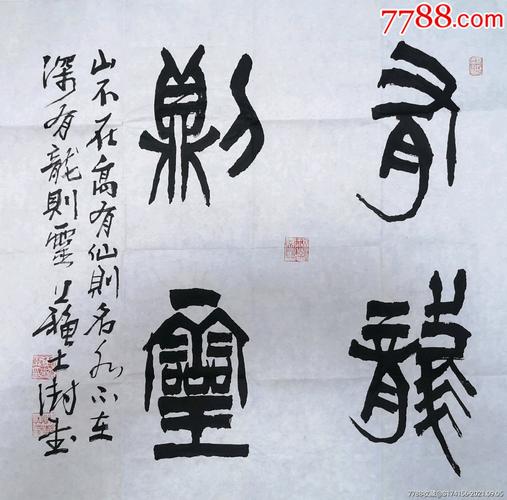 7788.com
有龍
則靈
山不在高有仙則名水不在
深有龍則靈
士澍書
7788收藏@S174156-2021.09.05